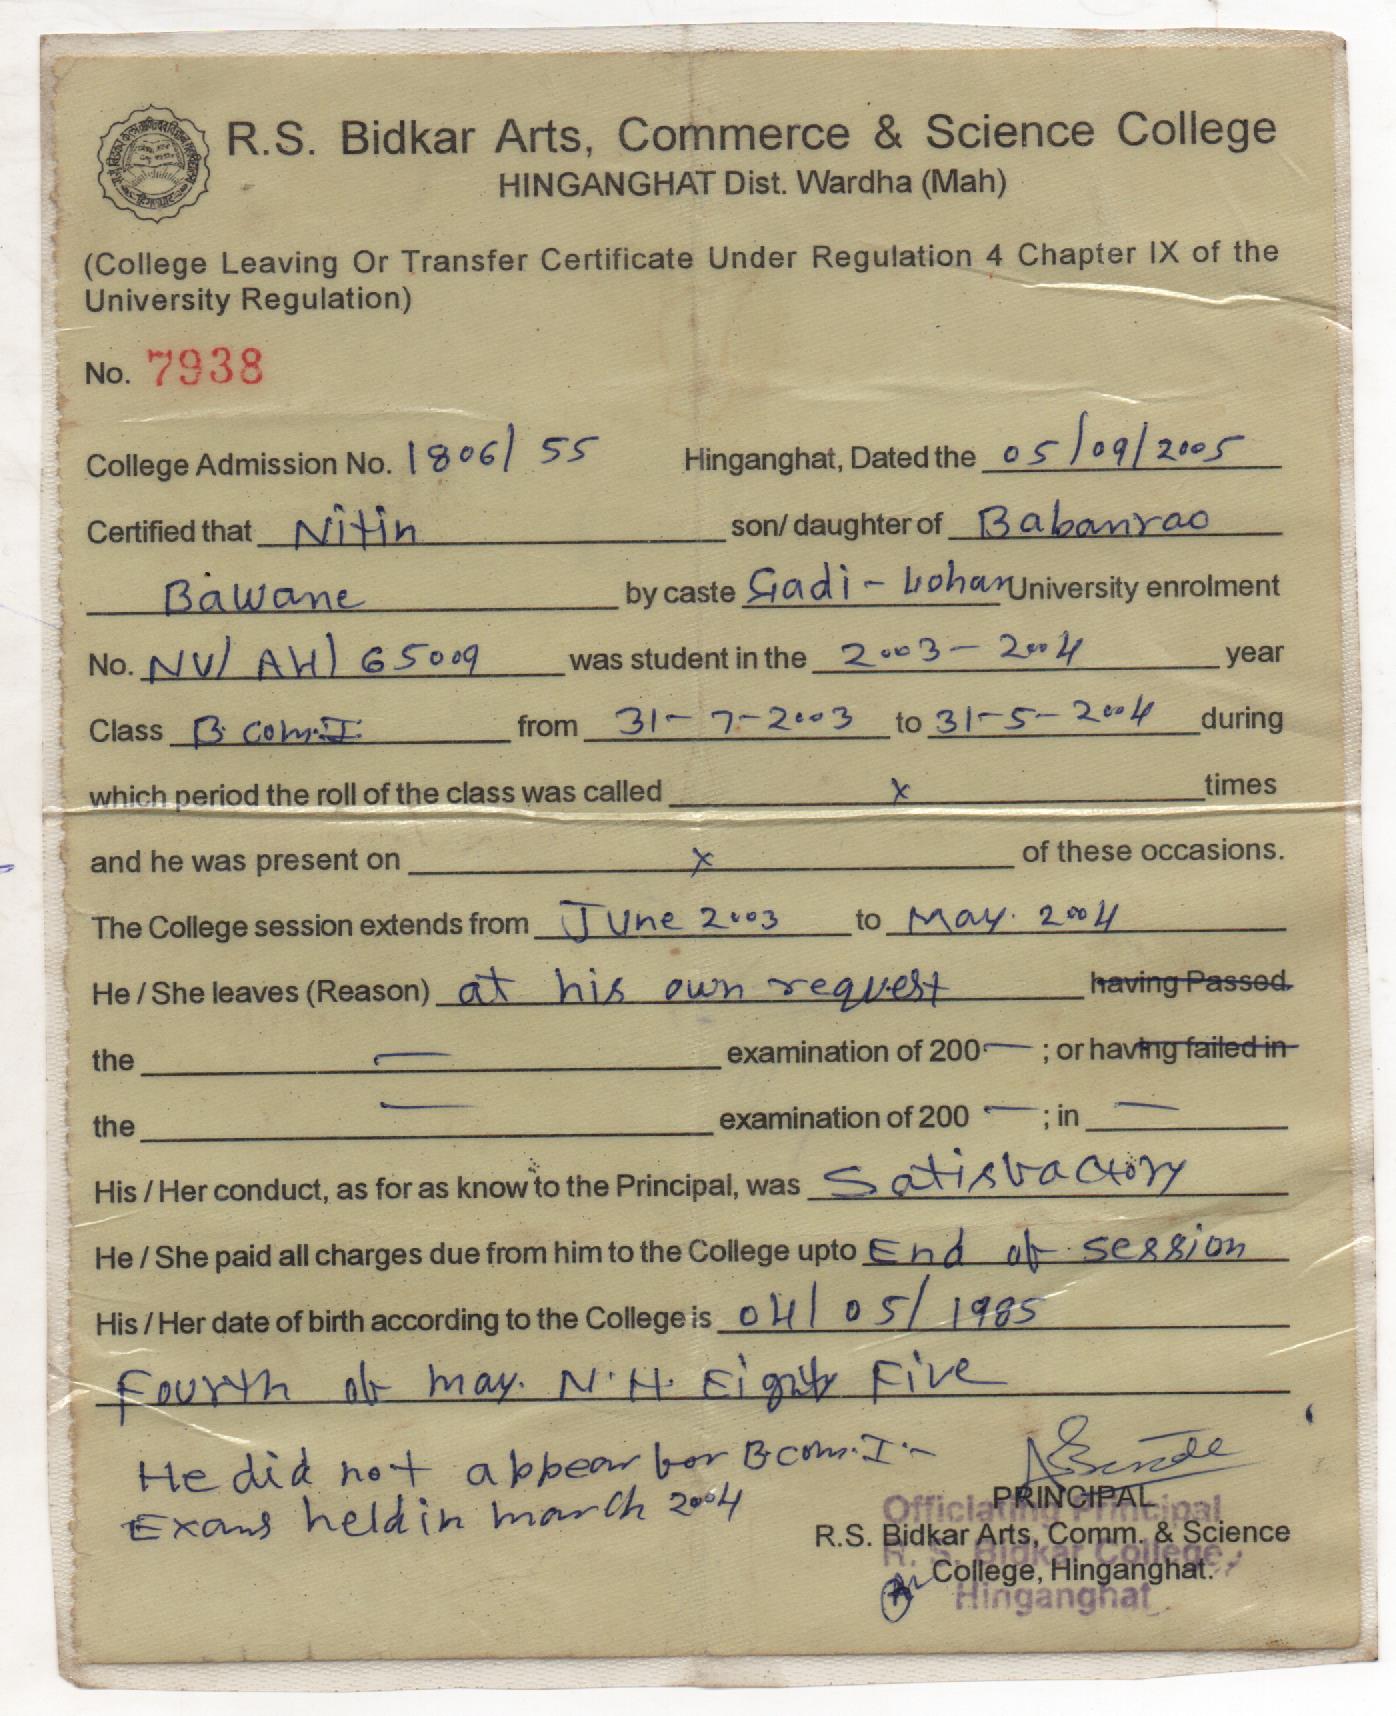 R.S. Bidkar Arts, Commerce & Science College
HINGANGHAT Dist. Wardha (Mah)
(College Leaving Or Transfer Certificate Under Regulation 4 Chapter IX of the
University Regulation)
No. 7938
College Admission No. 1806/ 55 Hinganghat, Dated the 05/09/2005
Certified that Nitin son/ daughter of Babanrao
Bawane by caste Gadi - Lohar University enrolment
No. NU/ AH/ 65009 was student in the 2003 - 2004 year
Class B. Com. I from 31-7-2003 to 31-5-2004 during
which period the roll of the class was called x times
and he was present on x of these occasions.
The College session extends from June 2003 to May. 2004
He / She leaves (Reason) at his own request having Passed.
the — examination of 200 — ; or having failed in
the — examination of 200 — ; in —
His / Her conduct, as for as know to the Principal, was Satisfactory
He / She paid all charges due from him to the College upto End of session
His / Her date of birth according to the College is 04/ 05/ 1985
Fourth of may. N.H. Eighty Five
He did not appear for B.com. I -
Exams held in march 2004
PRINCIPAL
Officiating Principal
R.S. Bidkar Arts, Comm. & Science
R. S. Bidkar College,
College, Hinganghat.
Hinganghat